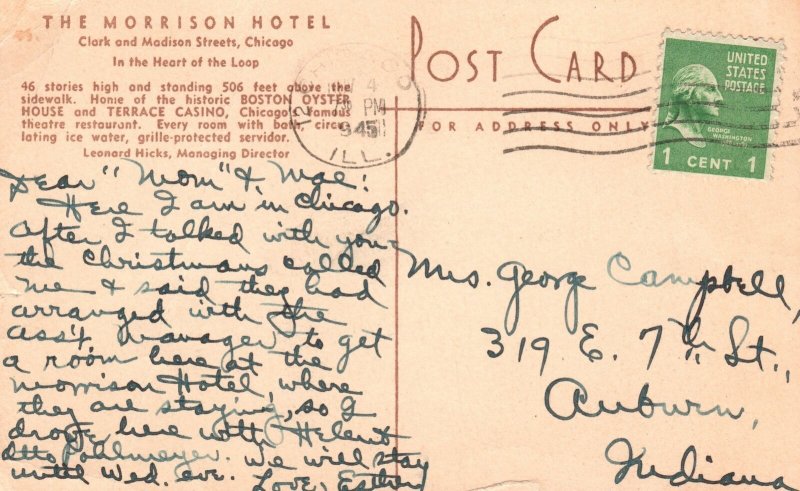 THE MORRISON HOTEL
Clark and Madison Streets, Chicago
In the Heart of the Loop
46 stories high and standing 506 feet above the
sidewalk. Home of the historic BOSTON OYSTER
HOUSE and TERRACE CASINO, Chicago's famous
theatre restaurant. Every room with bath, circu-
lating ice water, grille-protected servidor.
Leonard Hicks, Managing Director
POST CARD
FOR ADDRESS ONLY
4
PM
1945
ILL.
UNITED
STATES
POSTAGE
GEORGE
WASHINGTON
1 CENT 1
Dear "Mom" & Mae:
Here I am in Chicago.
After I talked with you
the Christmans called
me & said they had
arranged with the
ass't manager to get
a room here at the
Morrison Hotel, where
they are staying, so I
drove here with Helen &
Otto Pohlmeyer. We will stay
until Wed. eve. Love, Esther
Mrs. George Campbell,
319 E. 7th St.,
Auburn,
Indiana